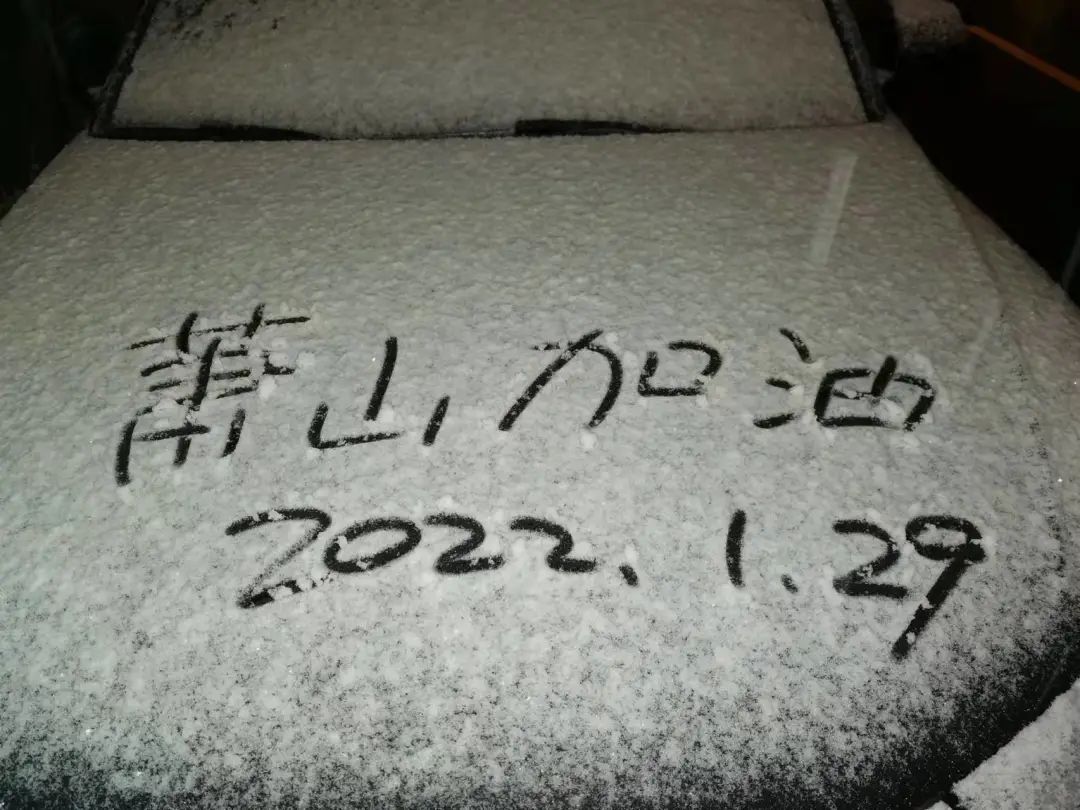 萧山加油
2022.1.29